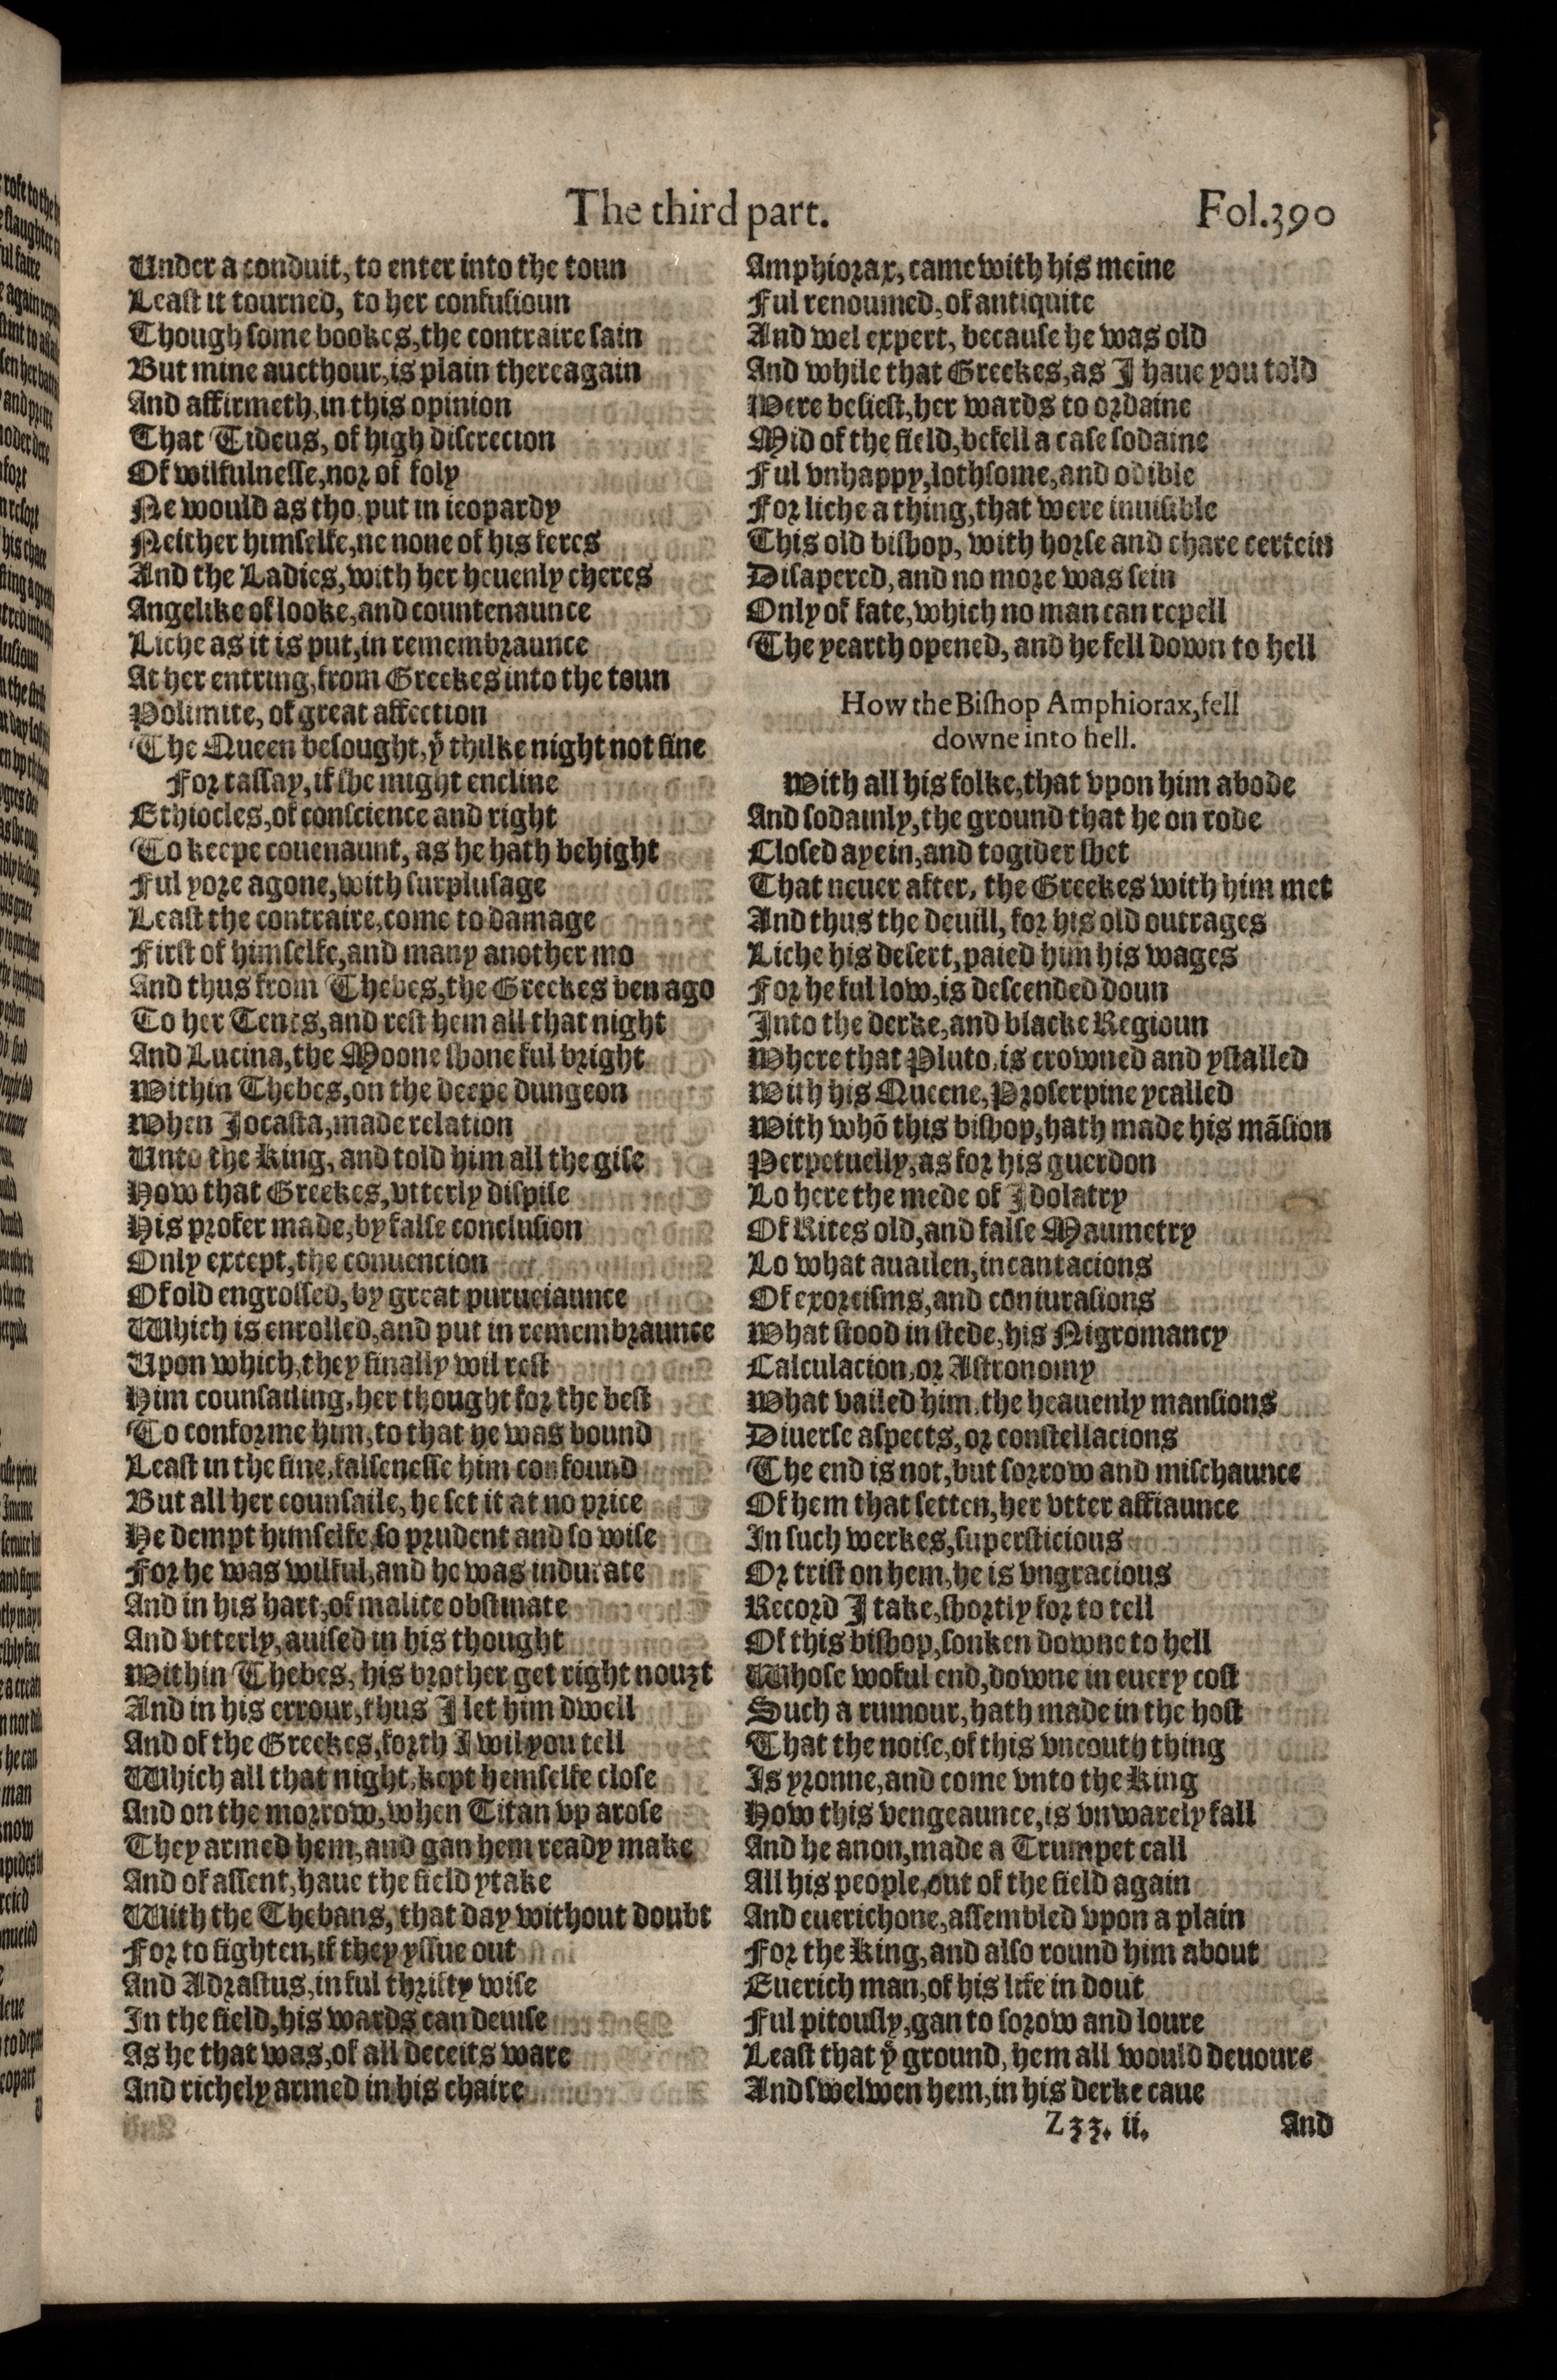 The third part. Fol.390
Under a conduit, to enter into the toun
Least it tourned, to her confusioun
Though some bookes, the contraire sain
But mine aucthour, is plain thereagain
And affirmeth, in this opinion
That Tideus, of high discrecion
Of wilfulnesse, nor of foly
Ne would as tho, put in ieopardy
Neither himselfe, ne none of his feres
And the Ladies, with her heuenly cheres
Angelike of looke, and countenaunce
Liche as it is put, in remembraunce
At her entring, from Greekes into the toun
Polimite, of great affection
The Queen besought, yͭ thilke night not fine
For tassay, if she might encline
Ethiocles, of conscience and right
To keepe couenaunt, as he hath behight
Ful yore agone, with surplusage
Least the contraire, come to damage
First of himselfe, and many another mo
And thus from Thebes, the Greekes ben ago
To her Tents, and rest hem all that night
And Lucina, the Moone shone ful bright
Within Thebes, on the deepe dungeon
When Jocasta, made relation
Unto the King, and told him all the gise
How that Greekes, vtterly dispise
His profer made, by false conclusion
Only except, the conuencion
Of old engrossed, by great purueiaunce
Which is enrolled, and put in remembraunce
Upon which, they finally wil rest
Him counsailing, her thought for the best
To conforme him, to that he was bound
Least in the fine, falsenesse him confound
But all her counsaile, he set it at no price
He dempt himselfe, so prudent and so wise
For he was wilful, and he was indurate
And in his hart, of malice obstinate
And vtterly, auised in his thought
Within Thebes, his brother get right nouȝt
And in his errour, thus I let him dwell
And of the Greekes, forth I wil you tell
Which all that night, kept hemselfe close
And on the morrow, when Titan vp arose
They armed hem, and gan hem ready make
And of assent, haue the field ytake
With the Thebans, that day without doubt
For to fighten, if they yssue out
And Adrastus, in ful thrifty wise
In the field, his wards can deuise
As he that was, of all deceits ware
And richely armed in his chaire
Amphiorax, came with his meine
Ful renoumed, of antiquite
And wel expert, because he was old
And while that Greekes, as I haue you told
Were besiest, her wards to ordaine
Mid of the field, befell a case sodaine
Ful vnhappy, lothsome, and odible
For liche a thing, that were inuisible
This old bishop, with horse and chare certein
Disapered, and no more was sein
Only of fate, which no man can repell
The yearth opened, and he fell down to hell
How the Bishop Amphiorax, fell
downe into hell.
With all his folke, that vpon him abode
And sodainly, the ground that he on rode
Closed ayein, and togider shet
That neuer after, the Greekes with him met
And thus the deuill, for his old outrages
Liche his desert, paied him his wages
For he ful low, is descended doun
Into the derke, and blacke Regioun
Where that Pluto, is crowned and ystalled
With his Queene, Proserpine ycalled
With whō this bishop, hath made his māsion
Perpetuelly, as for his guerdon
Lo here the mede of Idolatry
Of Rites old, and false Maumetry
Lo what auailen, incantacions
Of exorcisms, and coniurasions
What stood in stede, his Nigromancy
Calculacion, or Astronomy
What vailed him, the heauenly mansions
Diuerse aspects, or constellacions
The end is not, but sorrow and mischaunce
Of hem that setten, her vtter affiaunce
In such werkes, supersticious
Or trist on hem, he is vngracious
Record I take, shortly for to tell
Of this bishop, sonken downe to hell
Whose woful end, downe in euery cost
Such a rumour, hath made in the host
That the noise, of this vncouth thing
Is yronne, and come vnto the King
How this vengeaunce, is vnwarely fall
And he anon, made a Trumpet call
All his people, out of the field again
And euerichone, assembled vpon a plain
For the King, and also round him about
Euerich man, of his life in dout
Ful pitously, gan to sorow and loure
Least that yͤ ground, hem all would deuoure
And swelwen hem, in his derke caue
Zzz. ii. And